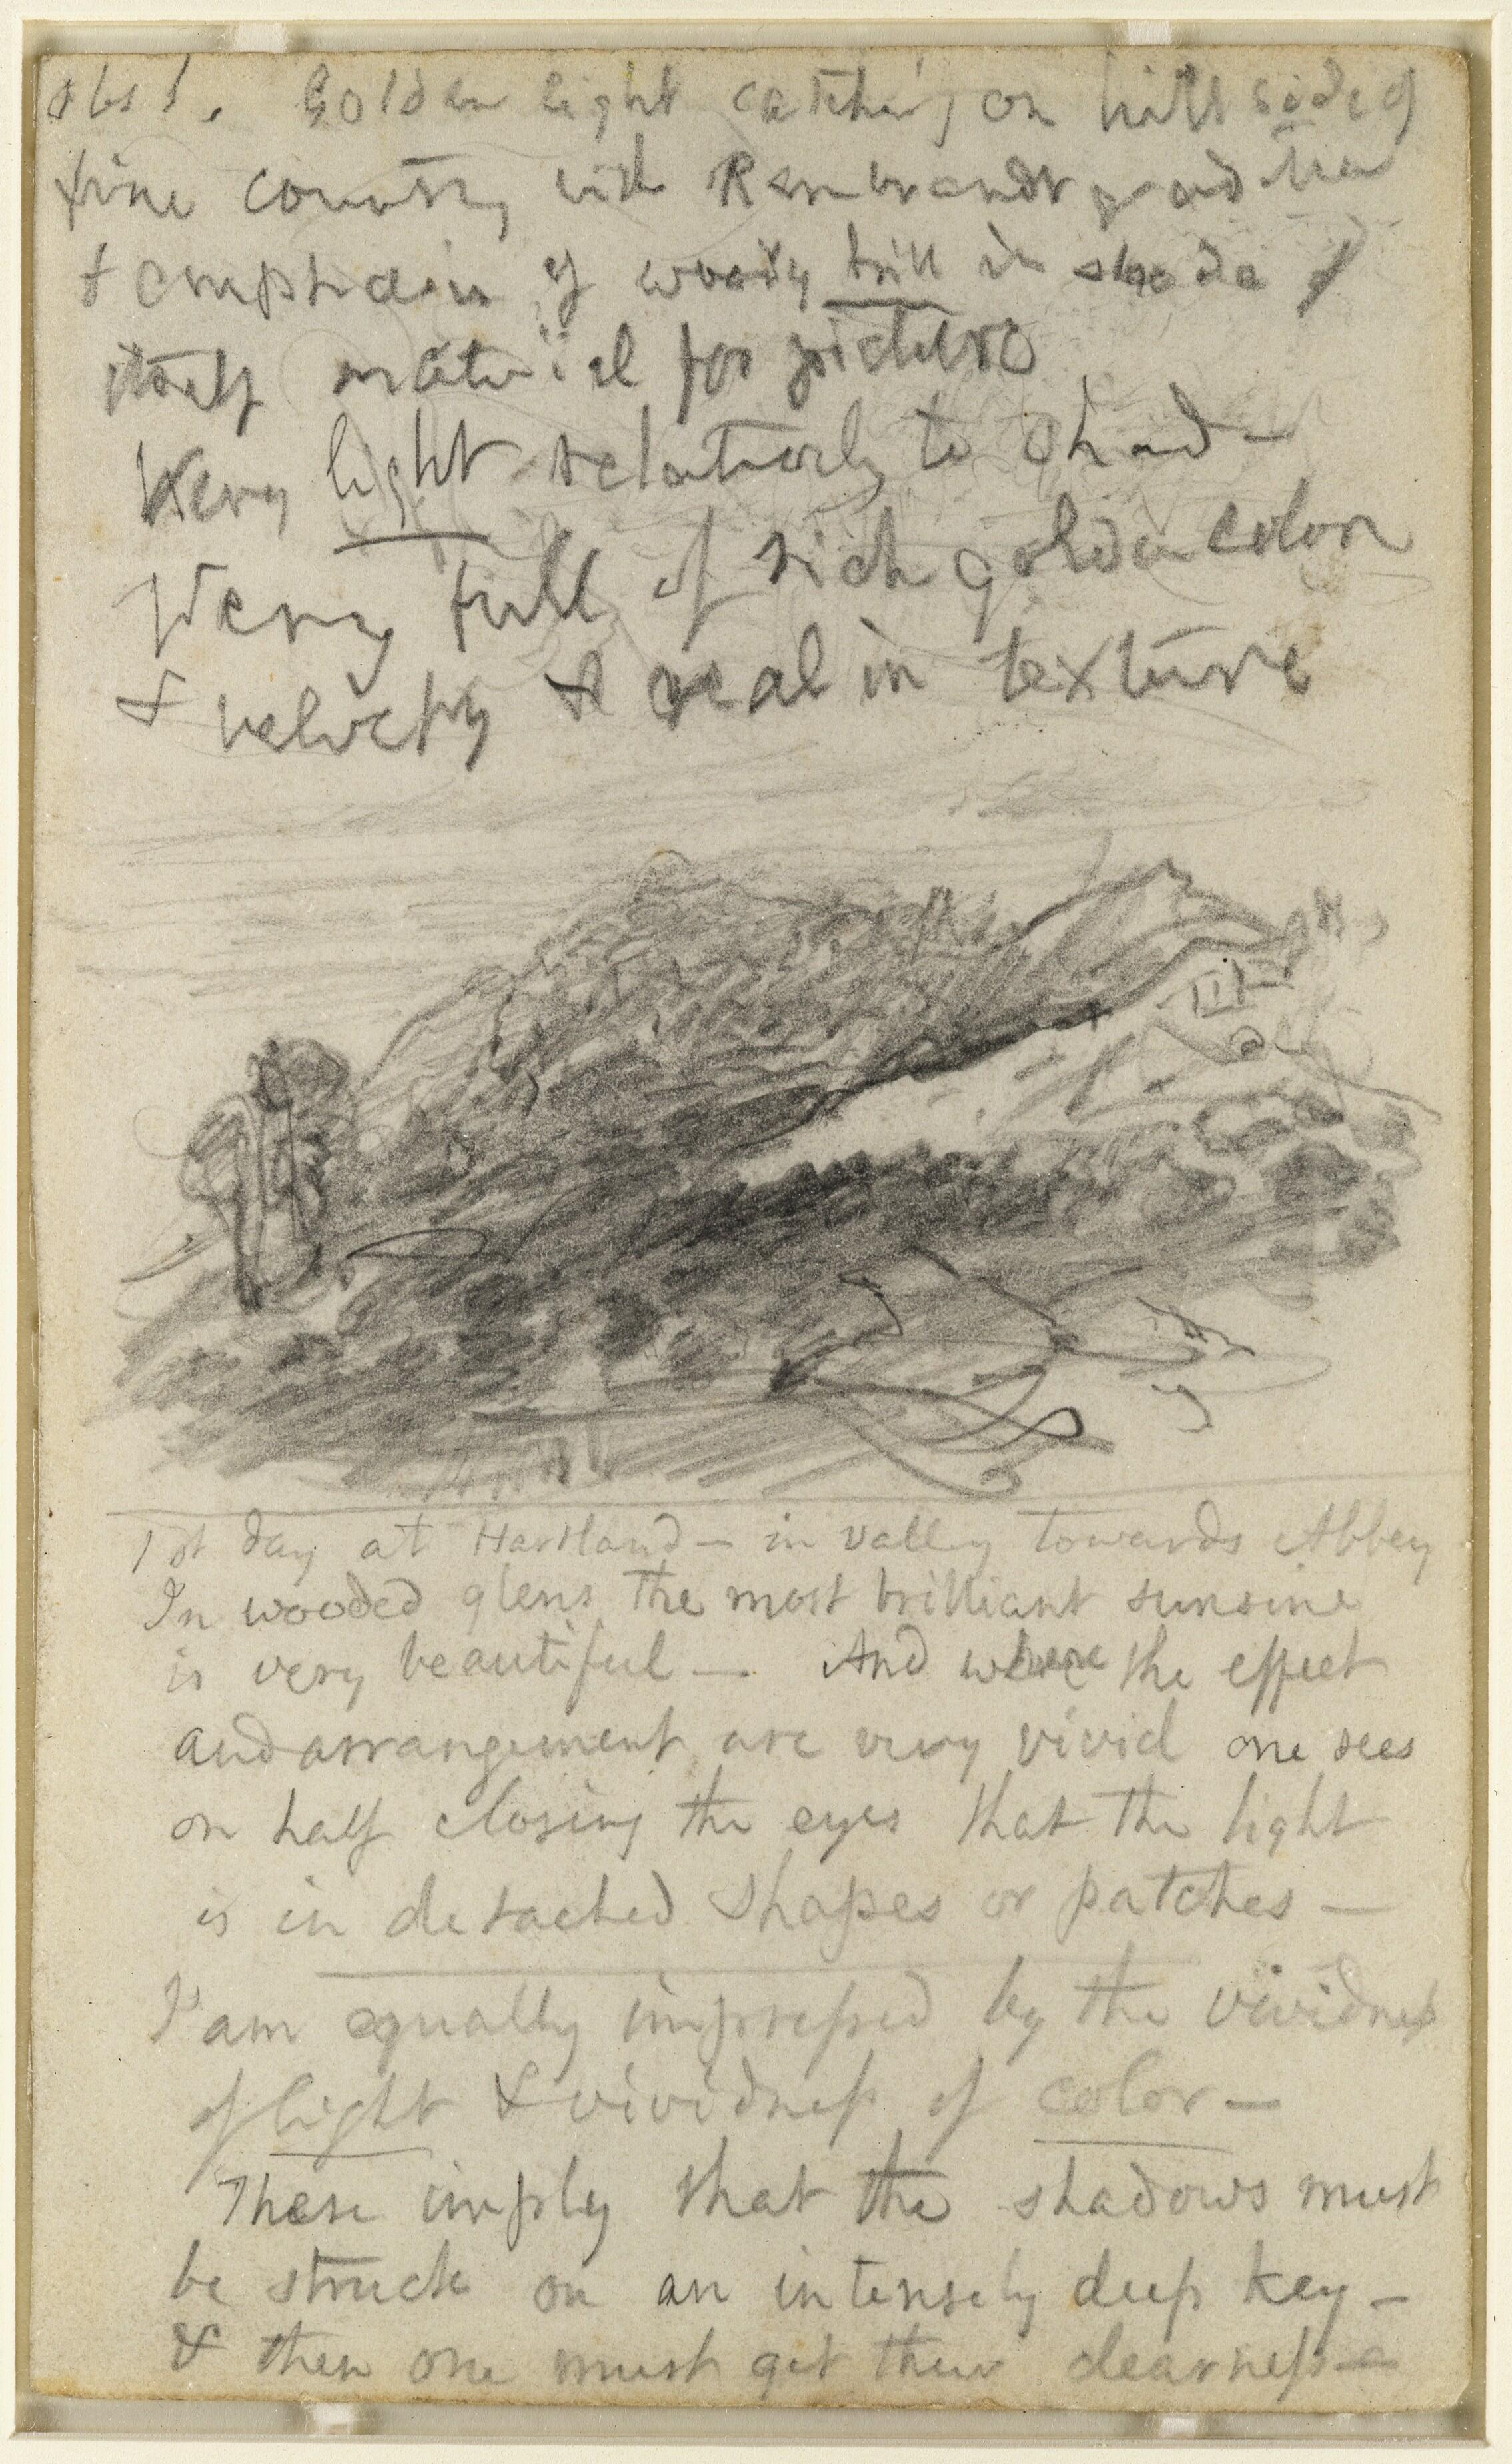 obs 1. Golden light catching on hill side of
fine country with Rembrandt
& emphasis of woody hill in shade
itself material for picture
Very light relatively to shad-
Very full of rich golden color
& velvety & real in texture
1st day at Hartland – in valley towards Abbey
In wooded glens the most brilliant sunsine
is very beautiful – And where the effect
and arrangement are very vivid one sees
on half closing the eyes that the light
is in detached shapes or patches –
I am equally impressed by the vividness
of light & vividness of color –
These imply that the shadows must
be struck on an intensely deep key –
& then one must get their clearness –